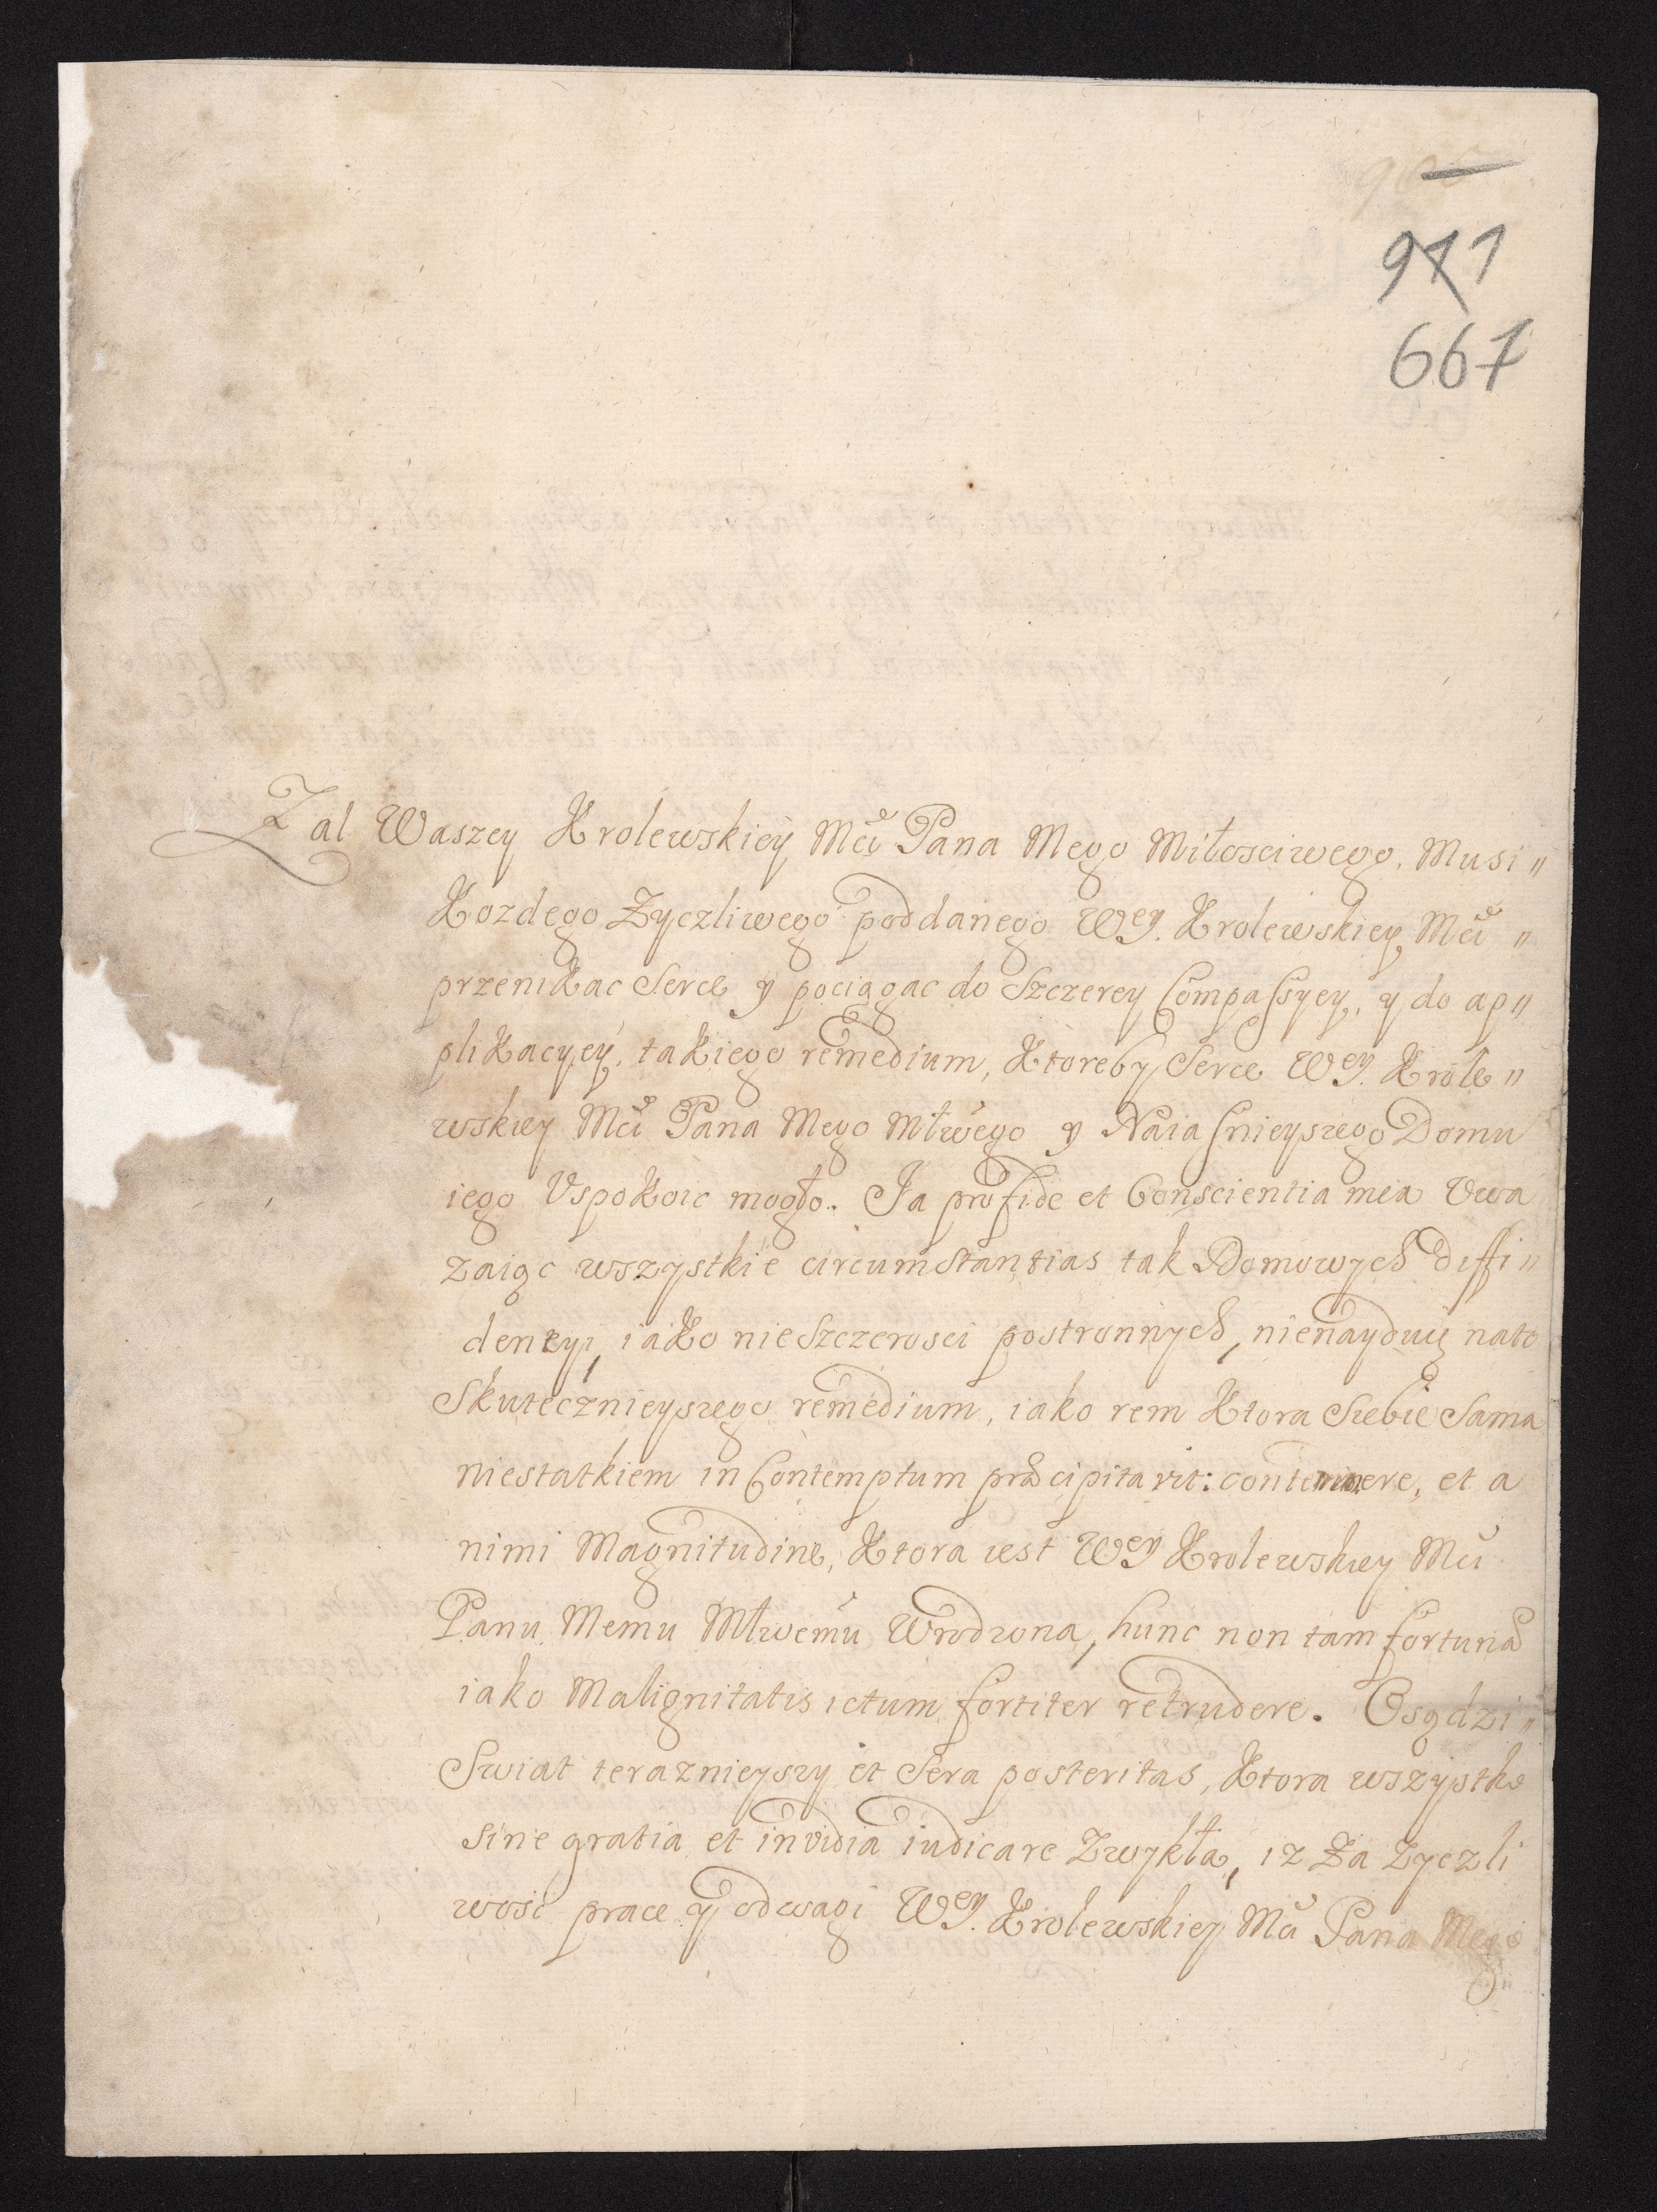 971
667
Zal Waszey Krolewskiey Mci Pana Mego Miłosciwego, Musi〃
Kozdego Zyczliwego poddanego Wey. Krolewskiey Mci〃
przenikac Serce y pociągac do Szczerey Compassyey, y do ap〃
plikacyey, takiego remedium, Ktoreby Serce Wey. Krole〃
wskiey Mci Pana Mego Młwego y Naiasnieyszego Domu
iego Uspokoic mogło. Ja pro fide et Conscientia mea Uwa
zaiąc wszystkie circumstantias tak Domowych diffi〃
dencyi, iako nieszczerosci postronnych, nienayduię nato
Skutecznieyszego remedium, iako rem Ktora Siebie Sama
niestatkiem in Contemptum præcipitavit: contemnere, et a
nimi Magnitudine, Ktora iest Wey Krolewskiey Mci
Panu Memu Młwemu Wrodzona, hunc non tam fortunæ
iako Malignitatis ictum fortiter retrudere. Osądzi〃
Swiat teraznieyszy et Sera posteritas, Ktora wszystko
sine gratia et invidia iudicare Zwykła, iz Za Zyczli
wosc prace y odwagi Wey. Krolewskiey Mci Pana Mego